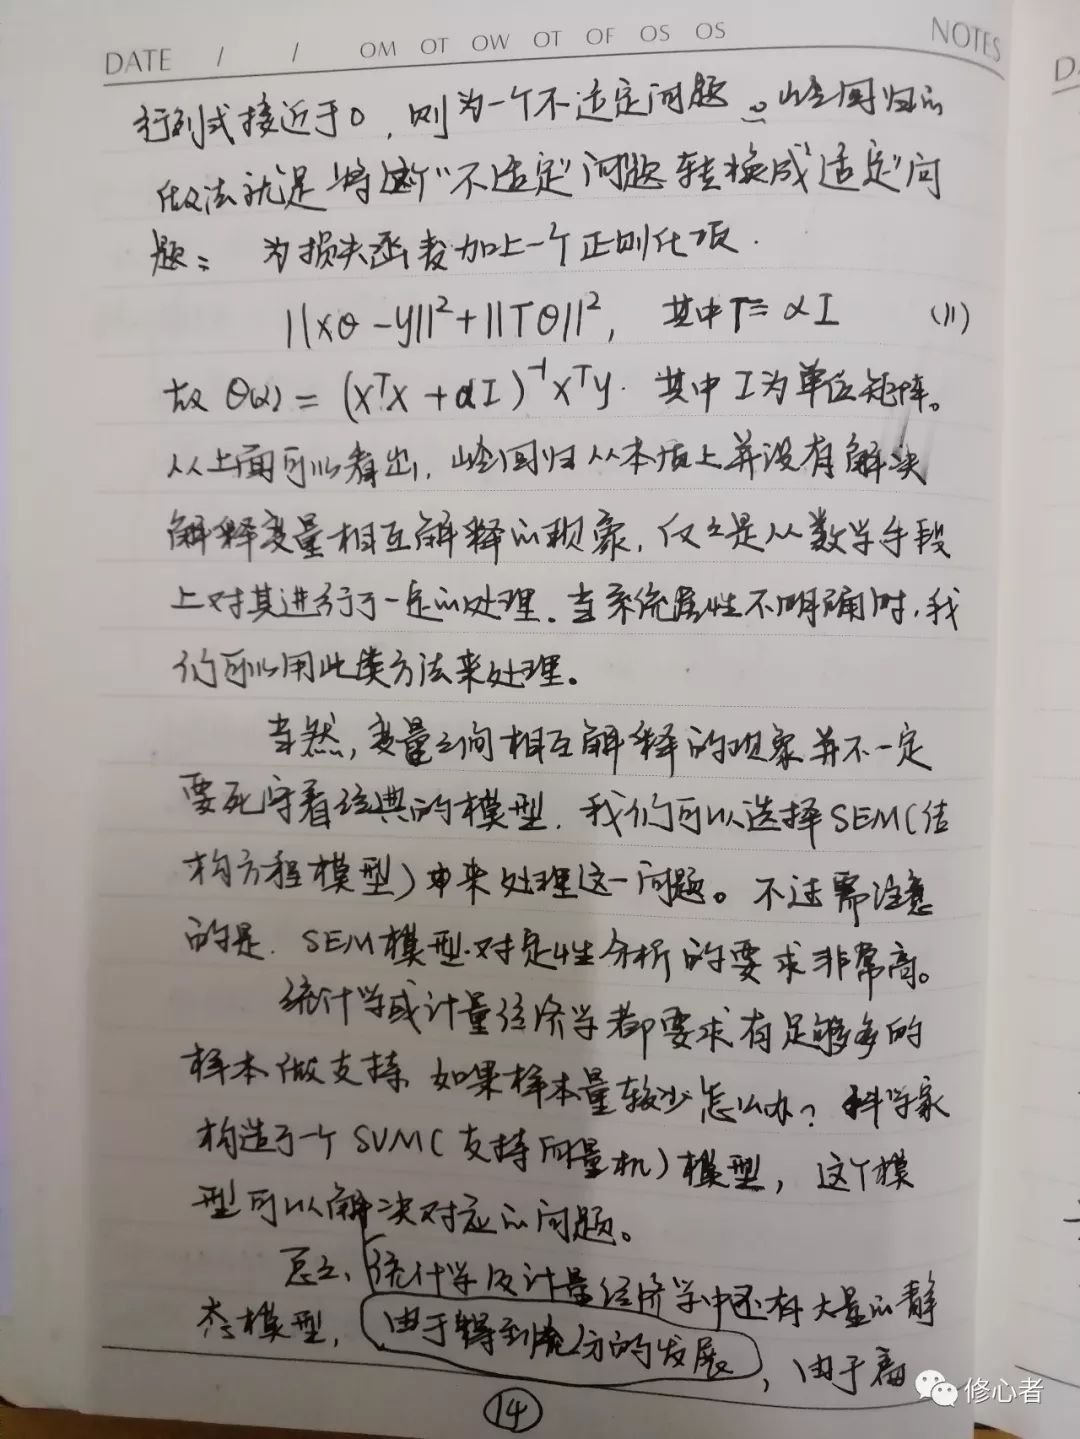 DATE / / OM OT OW OT OF OS OS NOTES
行列式接近于0,则为一个不适定问题。岭回归的
做法就是将这个"不适定"问题转换成"适定"问
题:为损失函数加上一个正则化项.
||Xθ-y||²+||Tθ||², 其中T=αI (11)
故θ(α)=(XᵀX+αI)⁻¹Xᵀy. 其中I为单位矩阵。
从上面可以看出,岭回归从本质上并没有解决
解释变量相互解释的现象,仅仅是从数学手段
上对其进行了一定的处理.当系统属性不明确时,我
们可以用此类方法来处理。
当然,变量之间相互解释的现象并不一定
要死守着经典的模型.我们可以选择SEM(结
构方程模型)来处理这一问题。不过需注意
的是.SEM模型对定性分析的要求非常高。
统计学或计量经济学都要求有足够多的
样本做支持,如果样本量较少怎么办?科学家
构造了一个SVM(支持向量机)模型,这个模
型可以解决对应的问题。
总之,统计学及计量经济学中还有大量的静
态模型,由于得到充分的发展,由于
14
修心者